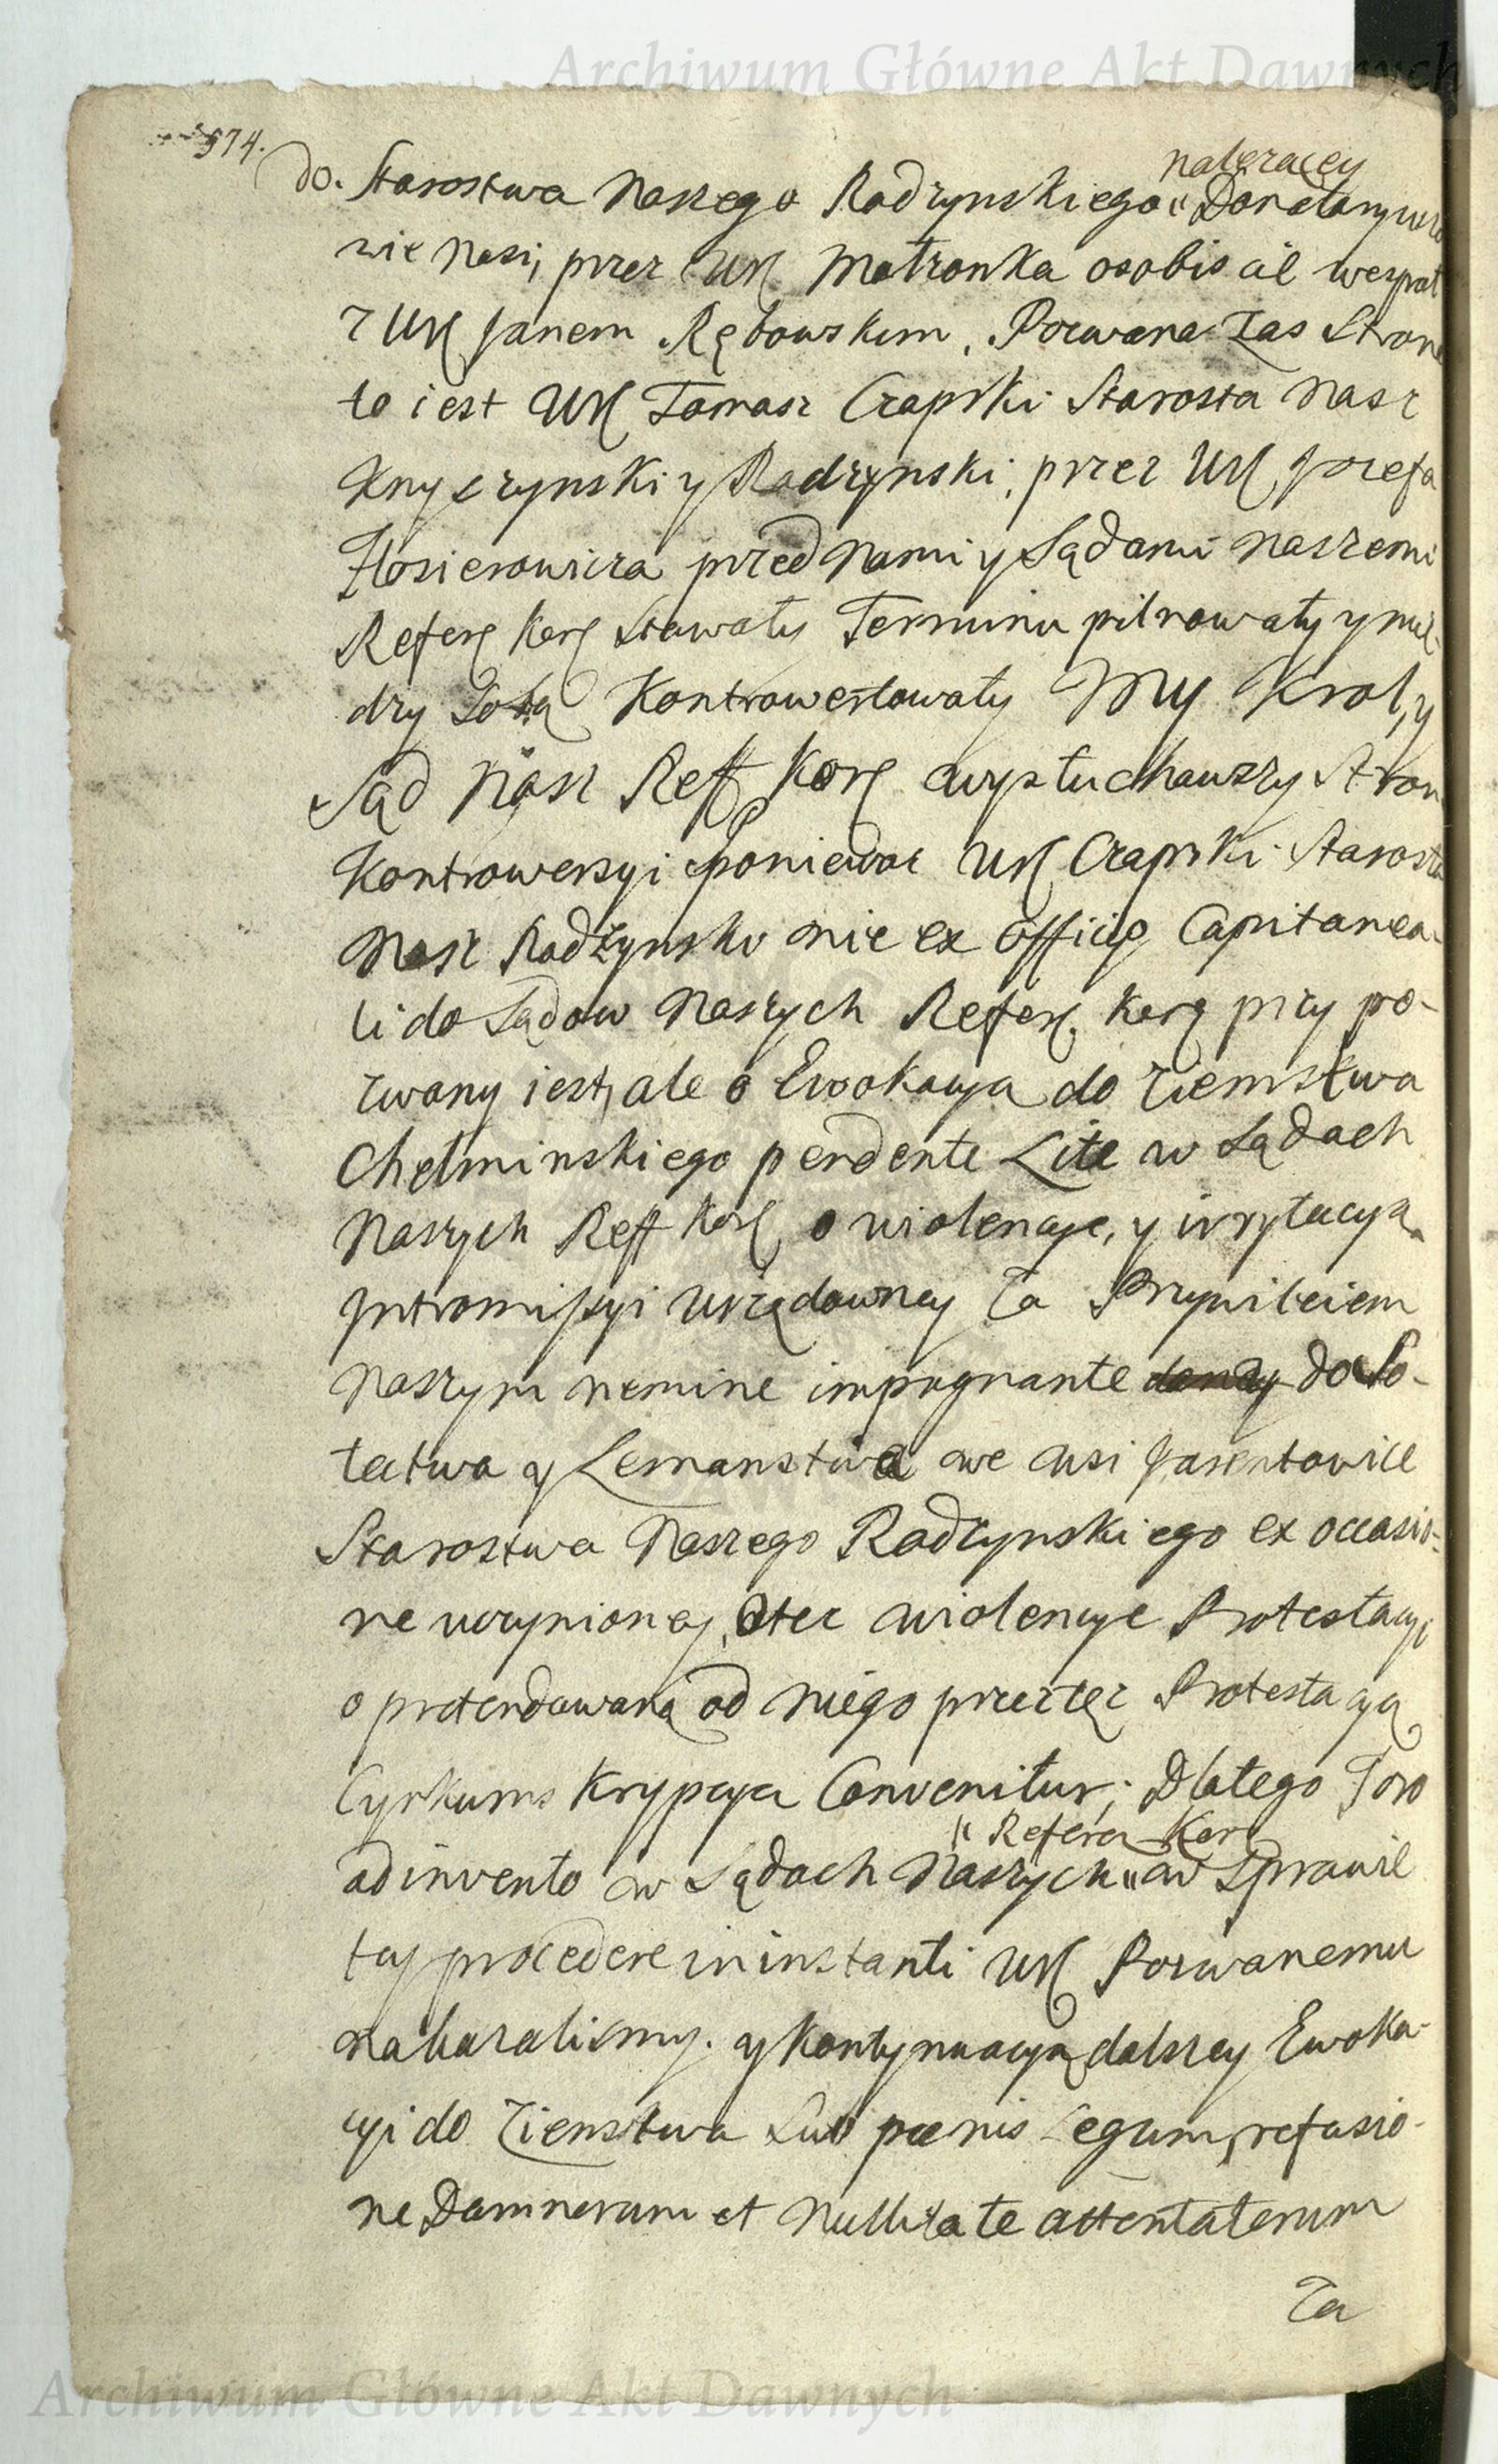 Archiwum Główne Akt Dawnych
974.
należący
do. Starostwa Naszego Radzynskiego " Donataryuszo
wie nasi, przez Ur Matronka osobiscie wespoł
z Ur Janem Rębowskim, Pozwana zas Strona
to iest Ur Tomasz Czapski Starosta Nasz
Knyszynski y Radzynski, przez Ur Jozefa
przed Nami y Sądami Naszemi
Refere Kore Stawały Terminu pilnowały y mie-
dzy Sobą Kontrowertowały My Krol, y
Sąd Nasz Reff Kore wysłuchawszy Stron
Kontrowersyi ponieważ Ur Czapski Starosta
Nasz Radzynski nie ex officio Capitanea-
li do Sądow Naszych Refere Kore przy po-
zwany iest, ale o Ewokacyą do Ziemstwa
Chełminskiego pendente Lite w Sądach
Naszych Reff Kore o wiolencye, y irrytacyą
Intromissyi Urzędowney za Przywileiem
Naszym nemine impugnante daney do So-
łectwa y Lemanstwa we wsi Jarentowice
Starostwa Naszego Radzynskiego ex occasio-
ne uczynioney Otez wiolencye Protestacyi
o pretendowaną od niego przez tęz Protestacyą
Cyrkumskrypcyą Convenitur; Dlatego Foro
" Refere Kore
adinvento w Sądach Naszych " w Sprawie
tey procedere in instanti Ur Pozwanemu
nakazalismy. y Kontynuacyą dalszey Ewoka-
cyi do Ziemstwa Sub pœnis Legum, refusio-
ne Damnorum et Nullitate attentatorum
Za
Archiwum Główne Akt Dawnych